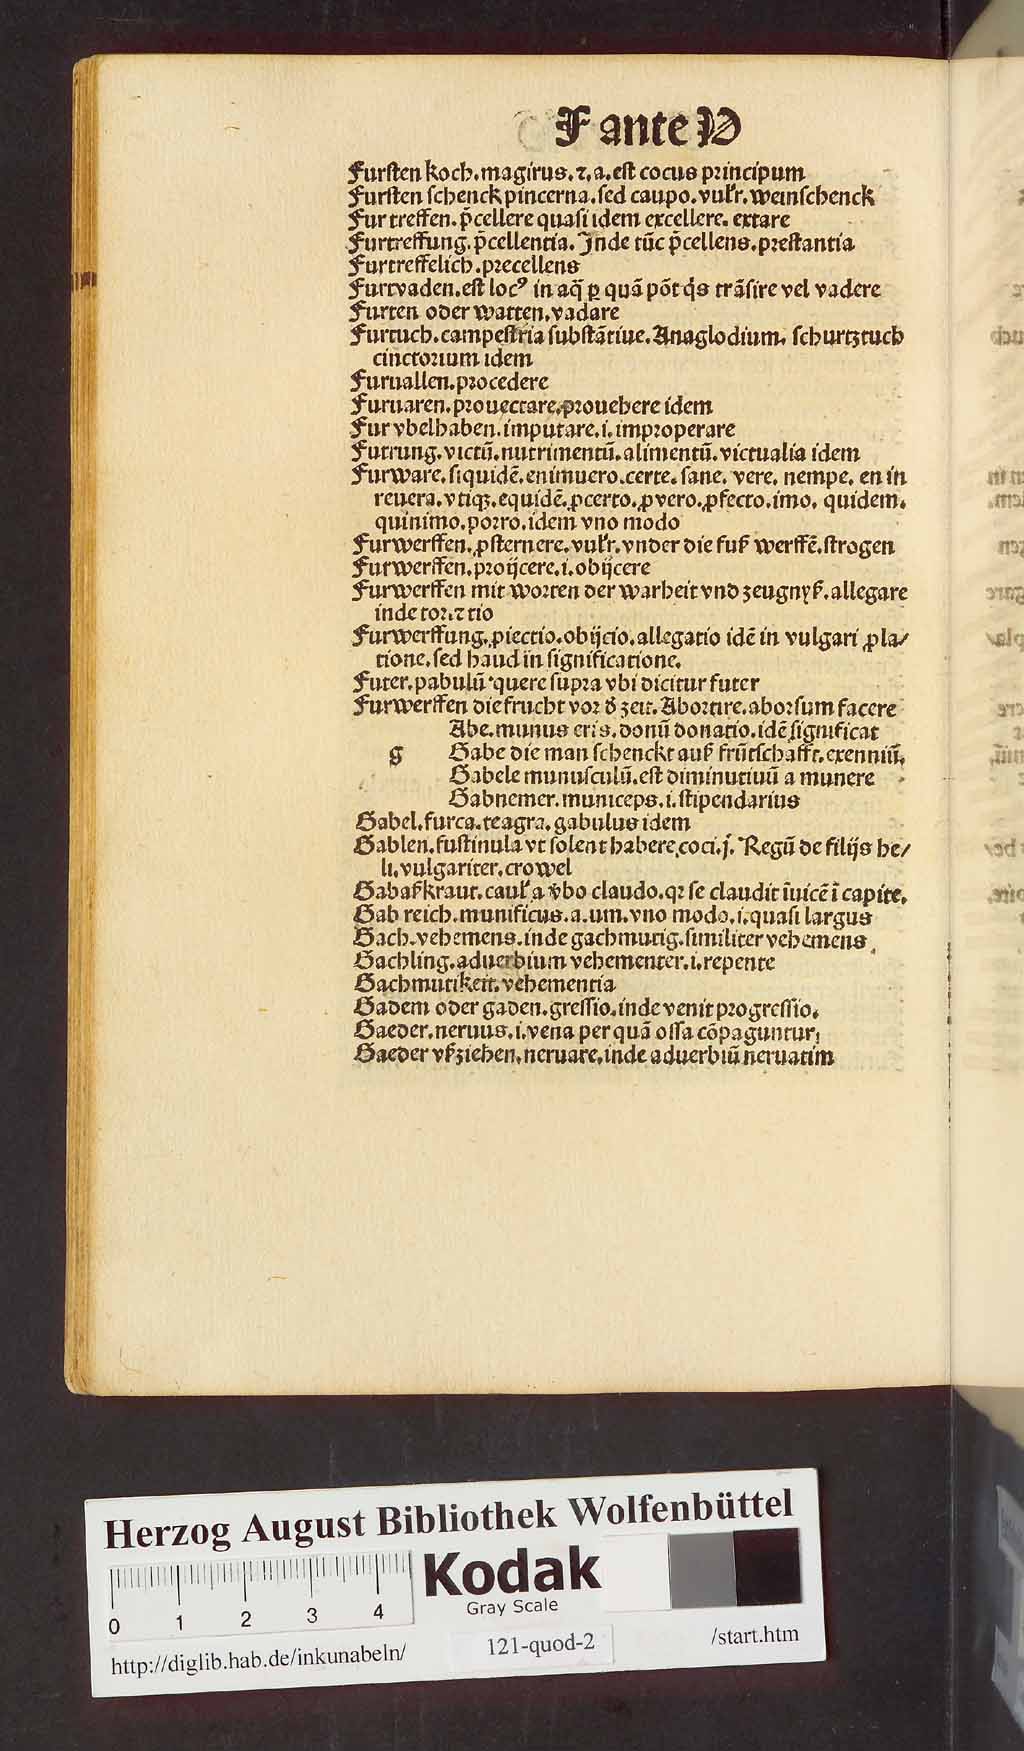 F ante V
Fursten koch. magirus. ⁊. a. est cocus principum
Fursten schenck pincerna. sed caupo. vulr̛. weinschenck
Fur treffen. p̄cellere quasi idem excellere. extare
Furtreffung. p̄cellentia. Inde tūc p̄cellens. prestantia
Furtreffelich. precellens
Furtvaden. est locꝰ in aq̄ ꝑ quā põt q̇s trāsire vel vadere
Furten oder watten. vadare
Furtuch. campestria substātiue. Anaglodium. schurtztuch
cinctorium idem
Furuallen. procedere
Furuaren. prouectare. prouehere idem
Fur vbelhaben. imputare. i. improperare
Futrung. victū. nutrimentū. alimentū. victualia idem
Furware. siquidē. enimuero. certe. sane. vere. nempe. en in
reuera. vtiqꝫ. equidē. ꝓcerto. ꝓvero. ꝓfecto. imo. quidem.
quinimo. porro. idem vno modo
Furwerffen. ꝓsternere. vulr̛. vnder die fuß werffē. strogen
Furwerffen. proijcere. i. obijcere
Furwerffen mit worten der warheit vnd zeugnyß. allegare
inde tor. ⁊ tio
Furwerffung. ꝓiectio. obijcio. allegatio idē in vulgari ꝓla/
tione. sed haud in significatione.
Futer. pabulū quere supra vbi dicitur futer
Furwerffen die frucht vor d̄ zeit. Abortire. aborsum facere
Abe. munus eris. donū donatio. idē significat
g Gabe die man schenckt auß frūtschafft. exenniū.
Gabele munusculū. est diminutiuū a munere
Gabnemer. municeps. i. stipendarius
Gabel. furca. teagra. gabulus idem
Gablen. fustinula vt solent habere coci. j. Regū de filijs he/
li. vulgariter. crowel
Gabaßkraut. caul̛ a v̄bo claudo. qꝛ se claudit ĩuicē ĩ capite.
Gab reich. munificus. a. um. vno modo. i. quasi largus
Gach. vehemens. inde gachmutig. similiter vehemens
Gachling. aduerbium vehementer. i. repente
Gachmutikeit. vehementia
Gadem oder gaden. gressio. inde venit progressio.
Gaeder. neruus. i. vena per quā ossa cōpaguntur.
Gaeder vßziehen. neruare. inde aduerbiū neruatim
Herzog August Bibliothek Wolfenbüttel
Kodak
Gray Scale
0 1 2 3 4
http://diglib.hab.de/inkunabeln/ 121-quod-2 /start.htm